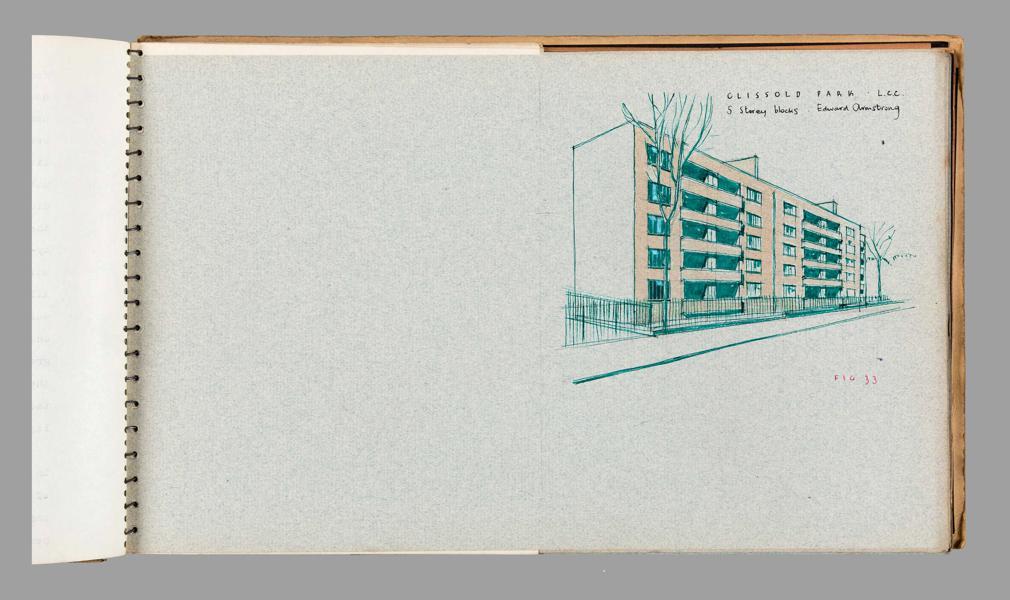 CLISSOLD PARK · L.C.C.
5 Storey blocks · Edward Armstrong
FIG 33